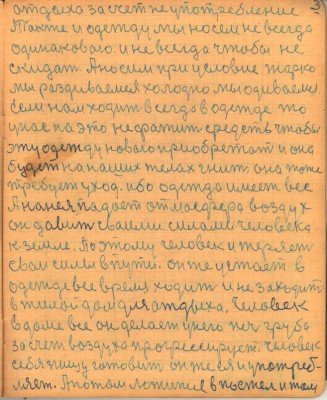 3
атдыха за счет не употребление
Такте и одежду мы носем не всегда
одинаковаю. и не всегда чтобы не
скидат. А носим при условие. жарко
мы раздиваемся холодно мы одиваемся
Если нам ходит всегда в одежде то
у нас на это не фратит средств чтобы
эту одежду новаю приобретат и она
будет на наших телах гнит. она тоже
требует уход. ибо одежда имеет вес
А на нея падает атмасфера воздух
он давит своими силами человека
к земле. Поэтому человек и теряет
сваи силы в пути. он не устаёт в
одежде все время ходит и не заходит
в жилой дом для атдыха. Человек
в доме все он делает у него печ груба
за счет воздуха прогрессирует. человек
себя пищу готовит он те ся и употреб-
ляет. А потом ложится в постел и там